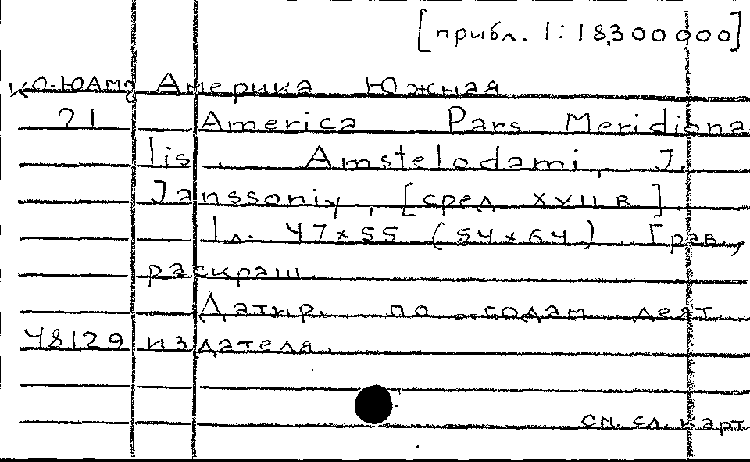 [прибл. 1:18,300000]
КО.ЮАм2 Америка Южная
21 America Pars Meridiona
lis. Amstelodami, J.
Janssoniy, [сред. XVII в.]
1 л. 47x55 (54x64). Грав.,
раскраш.
Датир. по годам деят.
48129 издателя.
см. сл. карт